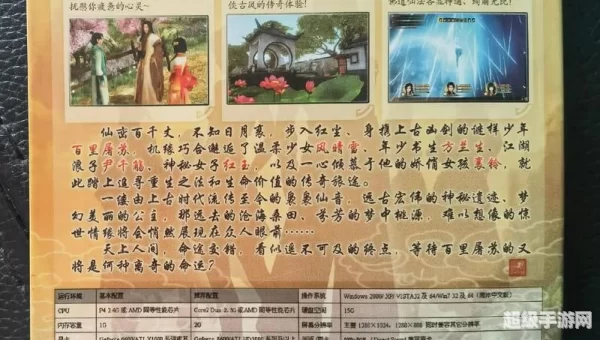 抚慰你疲惫的心灵~
侠古风的传奇体验!
仙峦百千丈,不知日月寒,步入红尘、身携上古凶剑的谜样少年
百里屠苏,机缘巧合邂逅了温柔少女风晴雪、年少书生方兰生,江湖
浪子尹千觞、神秘女子红玉,以及一心倾慕于他的娇俏女孩襄铃,就
此踏上追寻重生之法和生命价值的传奇旅途。
一缕由上古时代流传至今的袅袅仙音,远古宏伟的神秘遗迹、梦
幻美丽的公主,那远去的沧海桑田、芳芳的梦中桃源,难以想像的惊
世情缘将会悄然展现在众人眼前……
天上人间,命途交错,看似遥不可及的终点,等待百里屠苏的又
将是何种离奇的命运?
运行环境 基本配置 推荐配置 操作系统 Windows 2000/ XP/ VISTA32 及 64/Win7 32 及 64(简体中文版)
CPU P4 2.4G 或AMD 同等性能芯片 Core2 Duo 2.5G 或AMD 同等性能芯片 硬盘空间 15G
内存容量 1G 2G 屏幕分辨率 主要 1280*1024、1280*800 同时兼容其它分辨率
超级手游网